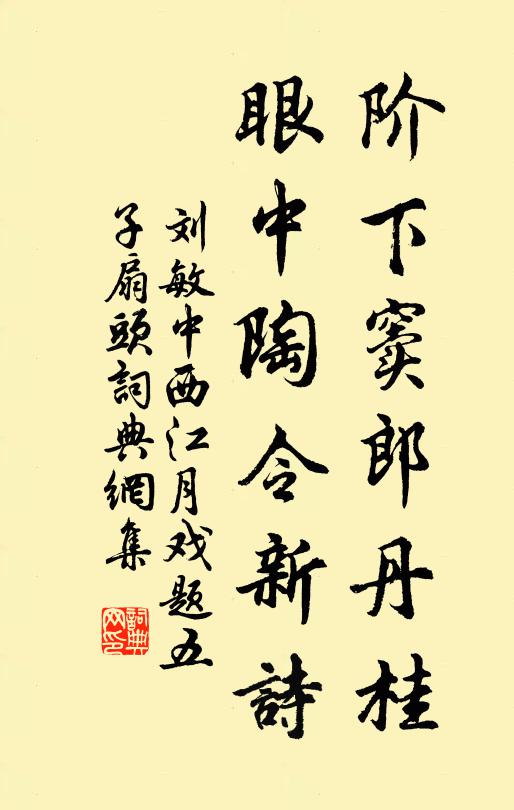 阶下窦郎丹桂
眼中陶令新詩
刘敏中西江月戏题五
子扇頭詞典網集
詞典
网印